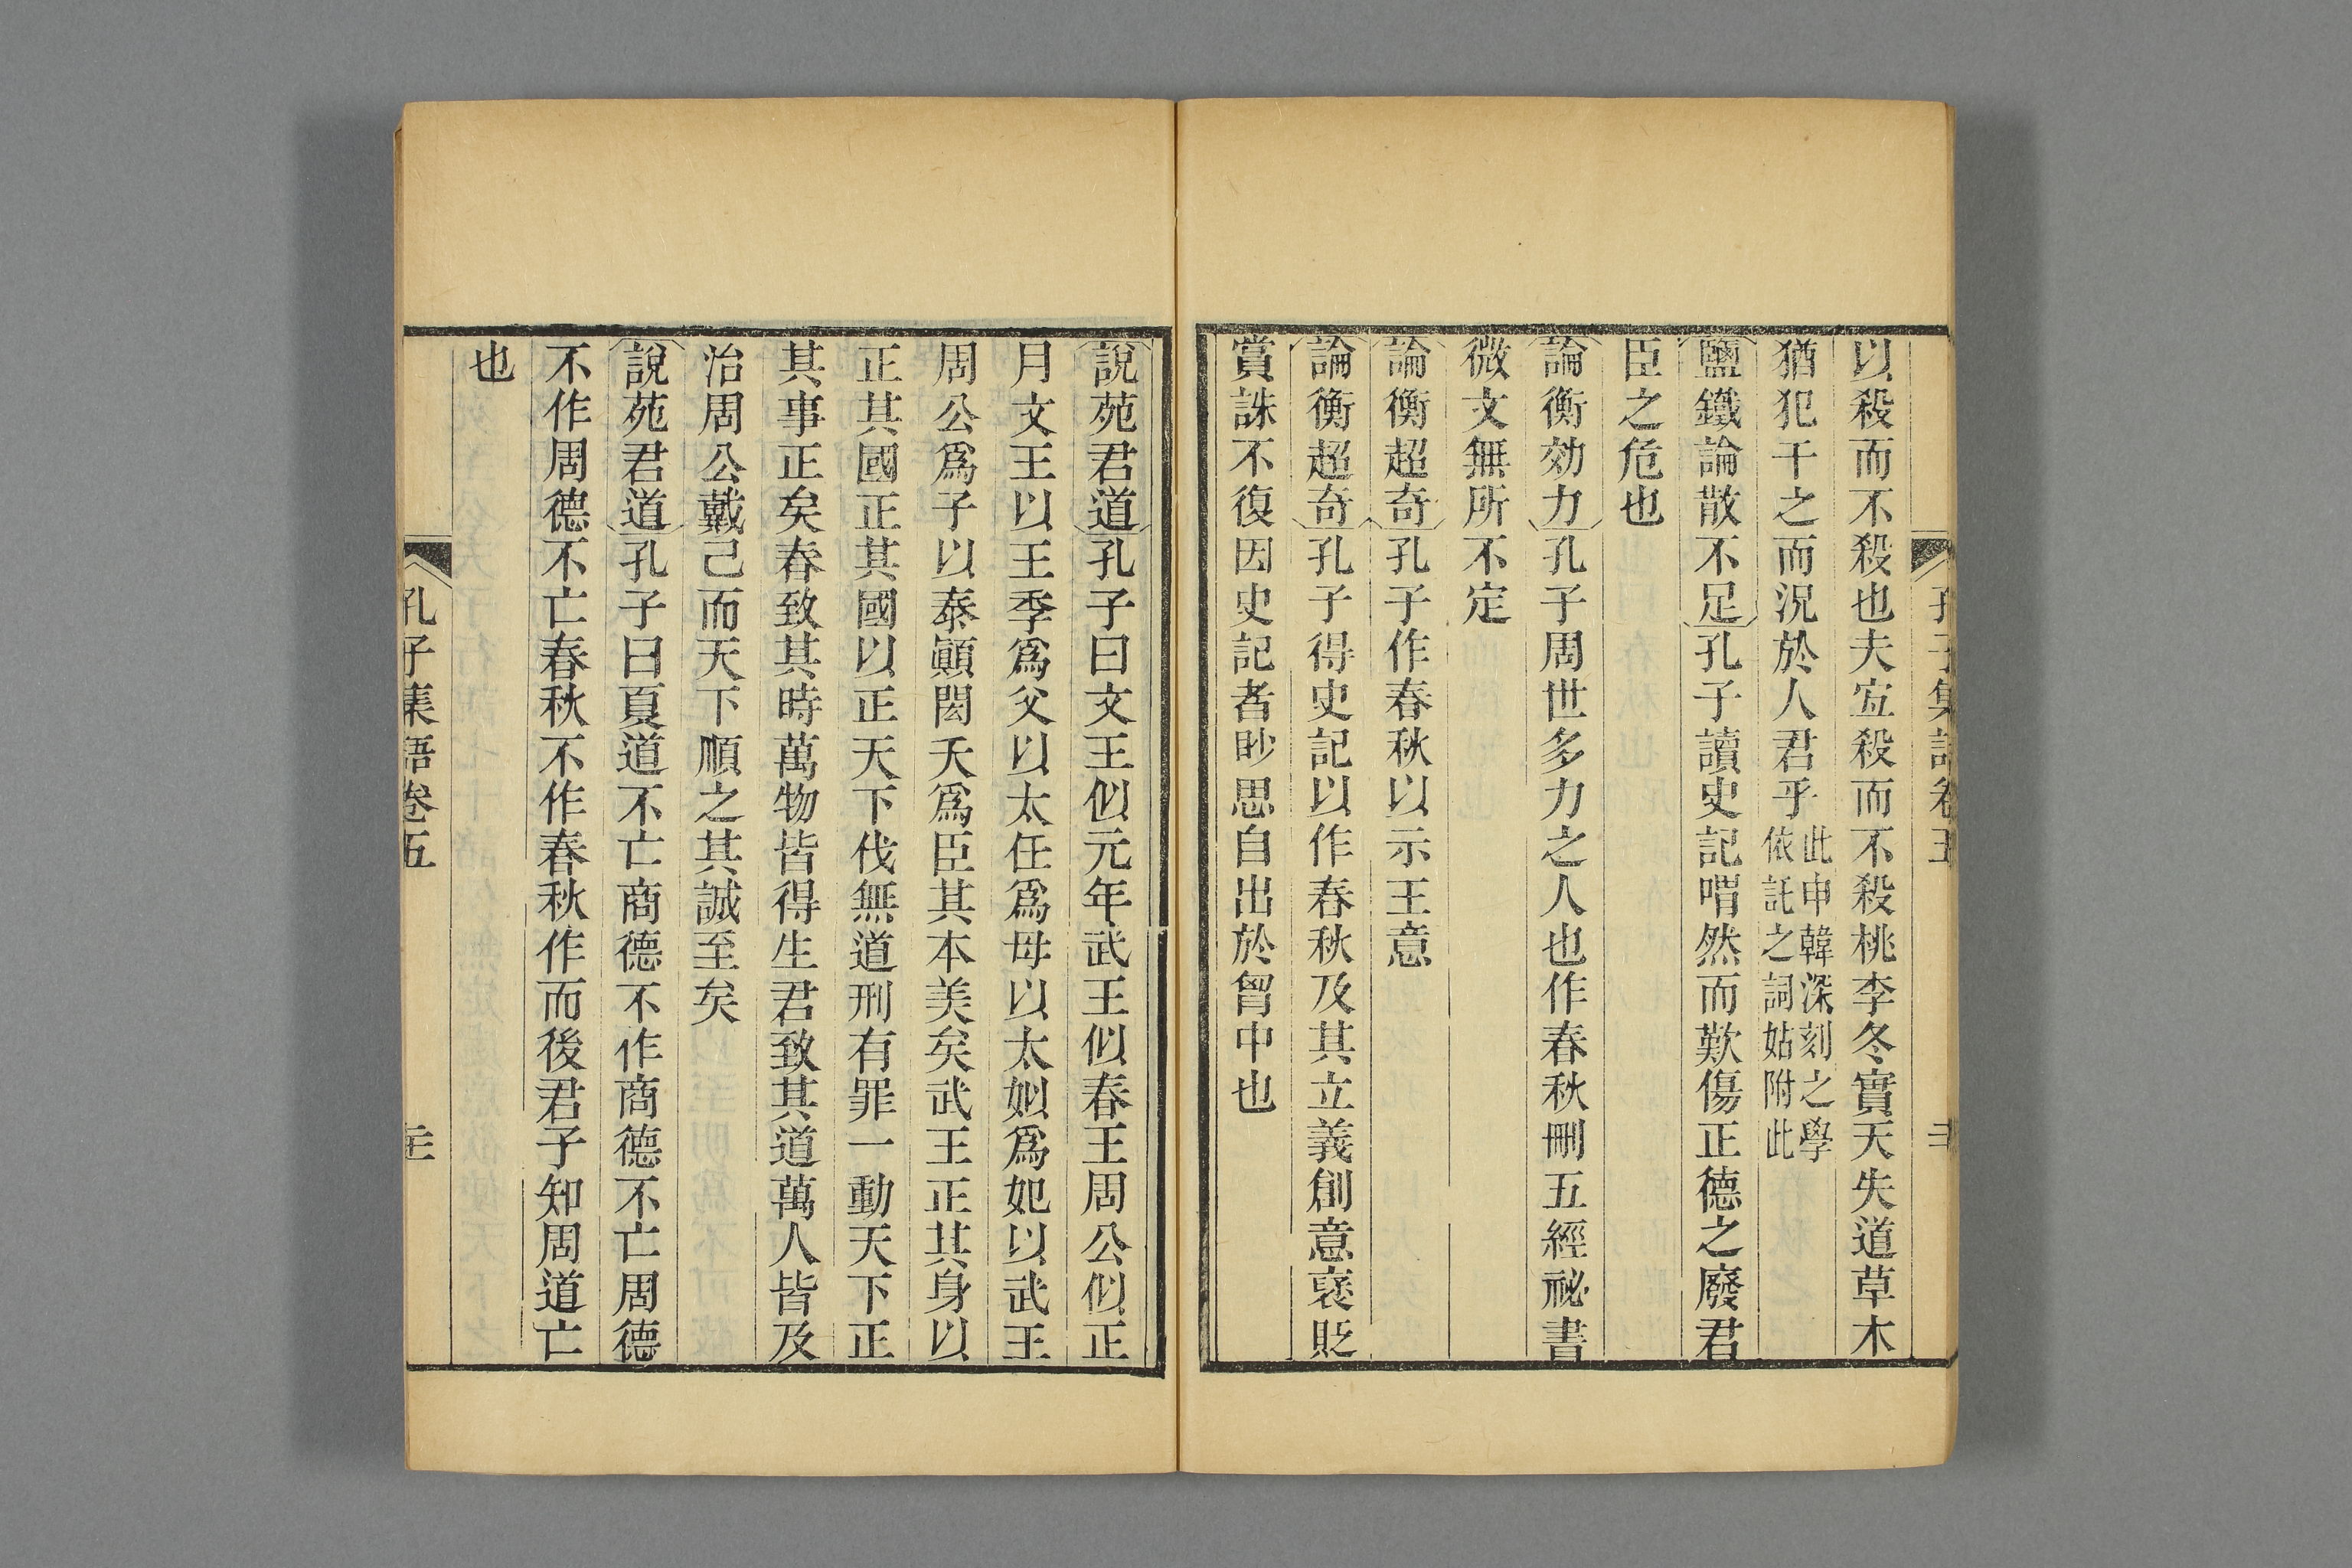 以殺而不殺也夫宐殺而不殺桃李冬實天失道草木
猶犯干之而況於人君乎此申韓深刻之學依託之詞姑附此
鹽鐵論散不足孔子讀史記喟然而歎傷正德之廢君
臣之危也
論衡効力孔子周世多力之人也作春秋刪五經祕書
微文無所不定
論衡超奇孔子作春秋以示王意
論衡超奇孔子得史記以作春秋及其立義創意褒貶
賞誅不復因史記者眇思自出於胷中也
說苑君道孔子曰文王似元年武王似春王周公似正
月文王以王季爲父以太任爲母以太姒爲妃以武王
周公爲子以泰顚閎夭爲臣其本美矣武王正其身以
正其國正其國以正天下伐無道刑有罪一動天下正
其事正矣春致其時萬物皆得生君致其道萬人皆及
治周公戴己而天下順之其誠至矣
說苑君道孔子曰夏道不亡商德不作商德不亡周德
不作周德不亡春秋不作春秋作而後君子知周道亡
也
孔子集語卷五